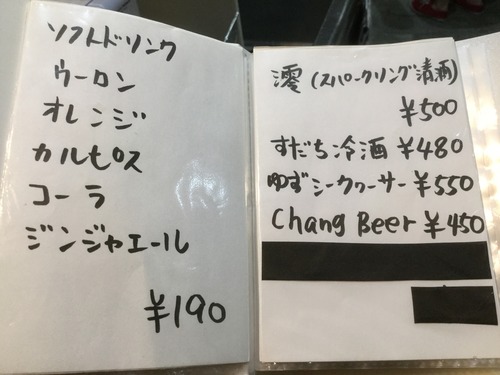 ソフトドリンク
ウーロン
オレンジ
カルピス
コーラ
ジンジャエール
¥190
澪(スパークリング清酒)
¥500
すだち冷酒 ¥480
ゆずシークヮーサー ¥550
Chang Beer ¥450